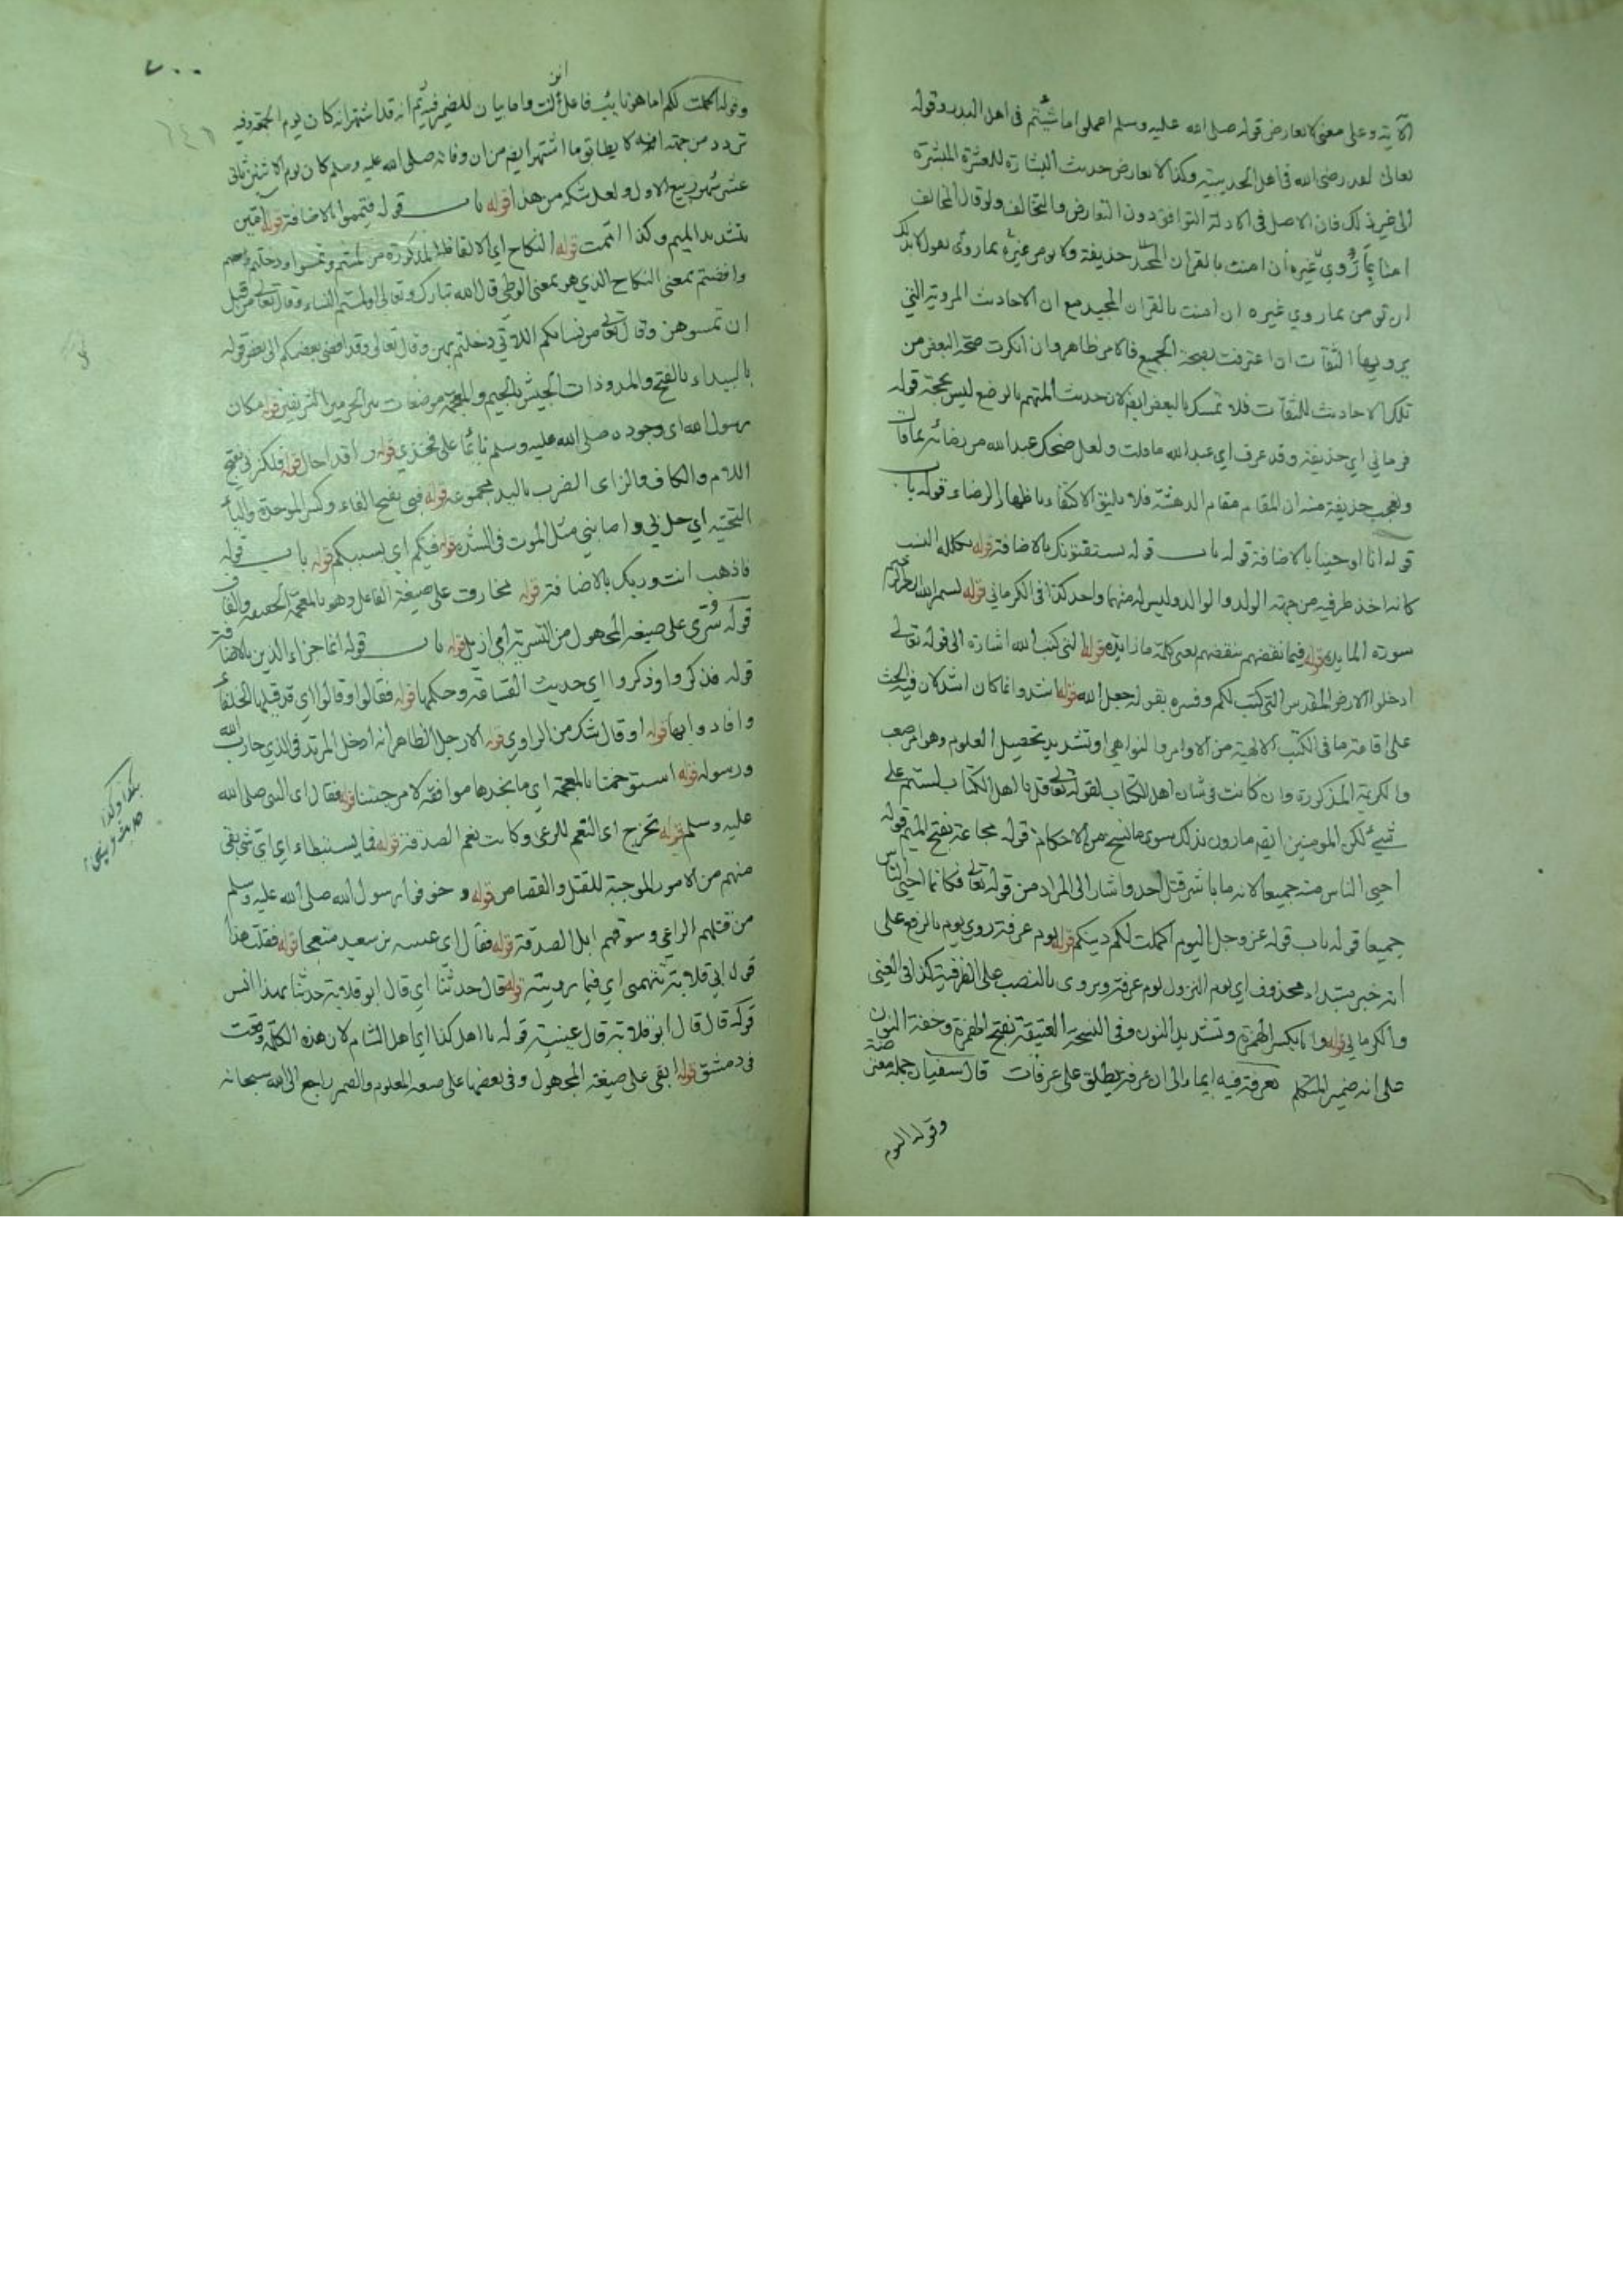 الآية وعلى معنى لا تعارض قوله صلى الله عليه وسلم اعملوا ما شئتم في اهل البدر وقوله
تعالى لقد رضي الله في اهل الحديبية وكذا لا تعارض حديث البشارة للعشرة المبشرة
الى غير ذلك فان الاصل في الادلة التوافق دون التعارض والتخالف ولو قال المخالف
امنا بما روي غيره ان امنت بالقران حذيفة ولا يؤمن غيره بما روى نقول لا بد لك
ان تومن بما روي غيره ان امنت بالقران المجيد مع ان الاحاديث المروية التي
يرويها الثقات ان اعترفت بصحة الجميع فالامر ظاهر وان انكرت صحة البعض من
تلك الاحاديث للثقات فلا تمسك بالبعض ايضا لان حديث المتهم بالوضع ليس بحجة قوله
فرماني اي حذيفة وقد عرف اي عبد الله ما قلت ولعل ضحك عبد الله من رضائه بما قال
وتعجب حذيفة منه ان المقام مقام الدهشة فلا يليق الاكتفاء باظهار الرضاء وقوله باب
قوله انا اوحينا بالاضافة قوله باب قوله يستفتونك بالاضافة قوله تكلله النسب
كانه اخذ طرفيه من جهة الولد والوالد وليس له منهما واحد كذا في الكرماني قوله بسم الله الرحمن الرحيم
سورة المايدة قوله فبما نقضهم بنقضهم يعني كلمة ما زايدة قوله التي كتب الله اشارة الى قوله تعالى
ادخلوا الارض المقدس التي كتب لكم وفسره بقوله جعل الله قوله اشد وانما كان اشد لان فيه الحث
على اقامة ما في الكتب الالهية من الاوامر والنواهي وتشديد تحصيل العلوم وهو امر صعب
والكريمة المذكورة وان كانت في شان اهل الكتاب لقوله تعالى قل يا اهل الكتاب لستم على
شيئ لكن المومنين ايضا مارون بذلك سوى ما نسخ من الاحكام قوله مجاعة بفتح الميم قوله
احيى الناس منه جميعا لانه ما باشر قتل احد واشار الى المراد من قوله تعالى فكانما احيى الناس
جميعا قوله باب قوله عز وجل اليوم اكملت لكم دينكم قوله يوم عرفة روي يوم بالرفع على
انه خبر مبتداء محذوف اي يوم النزول يوم عرفة ويروى بالنصب على الظرفية كذا في العيني
والكرماني قوله وانا بكسر الهمزة وتشديد النون وفي النسخة العتيقة بفتح الهمزة وخفة النون
على انه ضمير المتكلم بعرفة فيه ايماء الى ان عرفة يطلق على عرفات قال سفيان جملة معترضة
وقوله اليوم
٧٠٠
وقوله اكملت لكم اما هو نايب فاعل انزلت واما بيان للضمير فيه ثم انه قد اشتهر انه كان يوم الجمعة وفيه
تردد من جهة انه لا يطابق ما اشتهر ايضا من ان وفاته صلى الله عليه وسلم كان يوم الاثنين ثاني
عشر شهر ربيع الاول ولعل شكه من هذا قوله باب قوله فتيمموا بالاضافة قوله آمين
بتشديد الميم وكذا اتممت قوله النكاح اي الالفاظ المذكورة من لمستم وتمسوا ودخلتم بهن
وافضتم بمعنى النكاح الذي هو بمعنى الوطي قال الله تبارك وتعالى او لمستم النساء وقال تعالى من قبل
ان تمسوهن وقال تعالى من نسائكم اللاتي دخلتم بهن وقال تعالى وقد افضى بعضكم الى بعض قوله
بالبيداء بالفتح والمد وذات الجيش بالجيم والمعجمة موضعان بين الحرمين الشريفين قوله مكان
رسول الله اي وجوده صلى الله عليه وسلم نائما على فخذي قوله راقد احال قوله فلكزني بفتح
اللام والكاف والزاي الضرب باليد مجموعة قوله فبي بفتح الفاء وكسر الموحدة والياء
التحتية اي حل بي واصابني مثل الموت في الشدة قوله فيكم اي بسببكم قوله باب قوله
فاذهب انت وربك بالاضافة قوله مخارق على صيغة الفاعل وهو بالمعجمة الخفيفة والقاف
قوله سري على صيغة المجهول من التسرية اي ازيل قوله باب قوله انما جزاء الذين بالاضافة
قوله فذكروا وذكروا اي حديث القسامة وحكمها قوله فقالوا وقالوا اي قد قبلها الخلفاء
وافادوا بها قوله او قال شك من الراوي قوله الا رجل الظاهر انه ادخل المرتد في الذي حارب الله
ورسوله قوله استوخمنا بالمعجمة اي ما نجدها موافقة لامزجتنا قوله فقال اي النبي صلى الله
عليه وسلم قوله تخرج اي النعم للرعي وكانت نعم الصدقة قوله فما يستبطاء اي اي شئ بقي
منهم من الامور الموجبة للقتل والقصاص قوله وخوفوا رسول الله صلى الله عليه وسلم
من قتلهم الراعي وسوقهم ابل الصدقة قوله فقال اي عنبسة بن سعيد متعجبا قوله فقلت هذا
قول ابي قلابة تتهمني اي فيما رويته قوله قال حدثنا اي قال ابو قلابة حدثنا بهذا انس
قوله قال قال ابو قلابة قال عنبسة قوله يا اهل كذا اي اهل الشام لان هذه الكلمة وقعت
في دمشق قوله ابقى على صيغة المجهول وفي بعضها على صيغة المعلوم والضمير راجع الى الله سبحانه